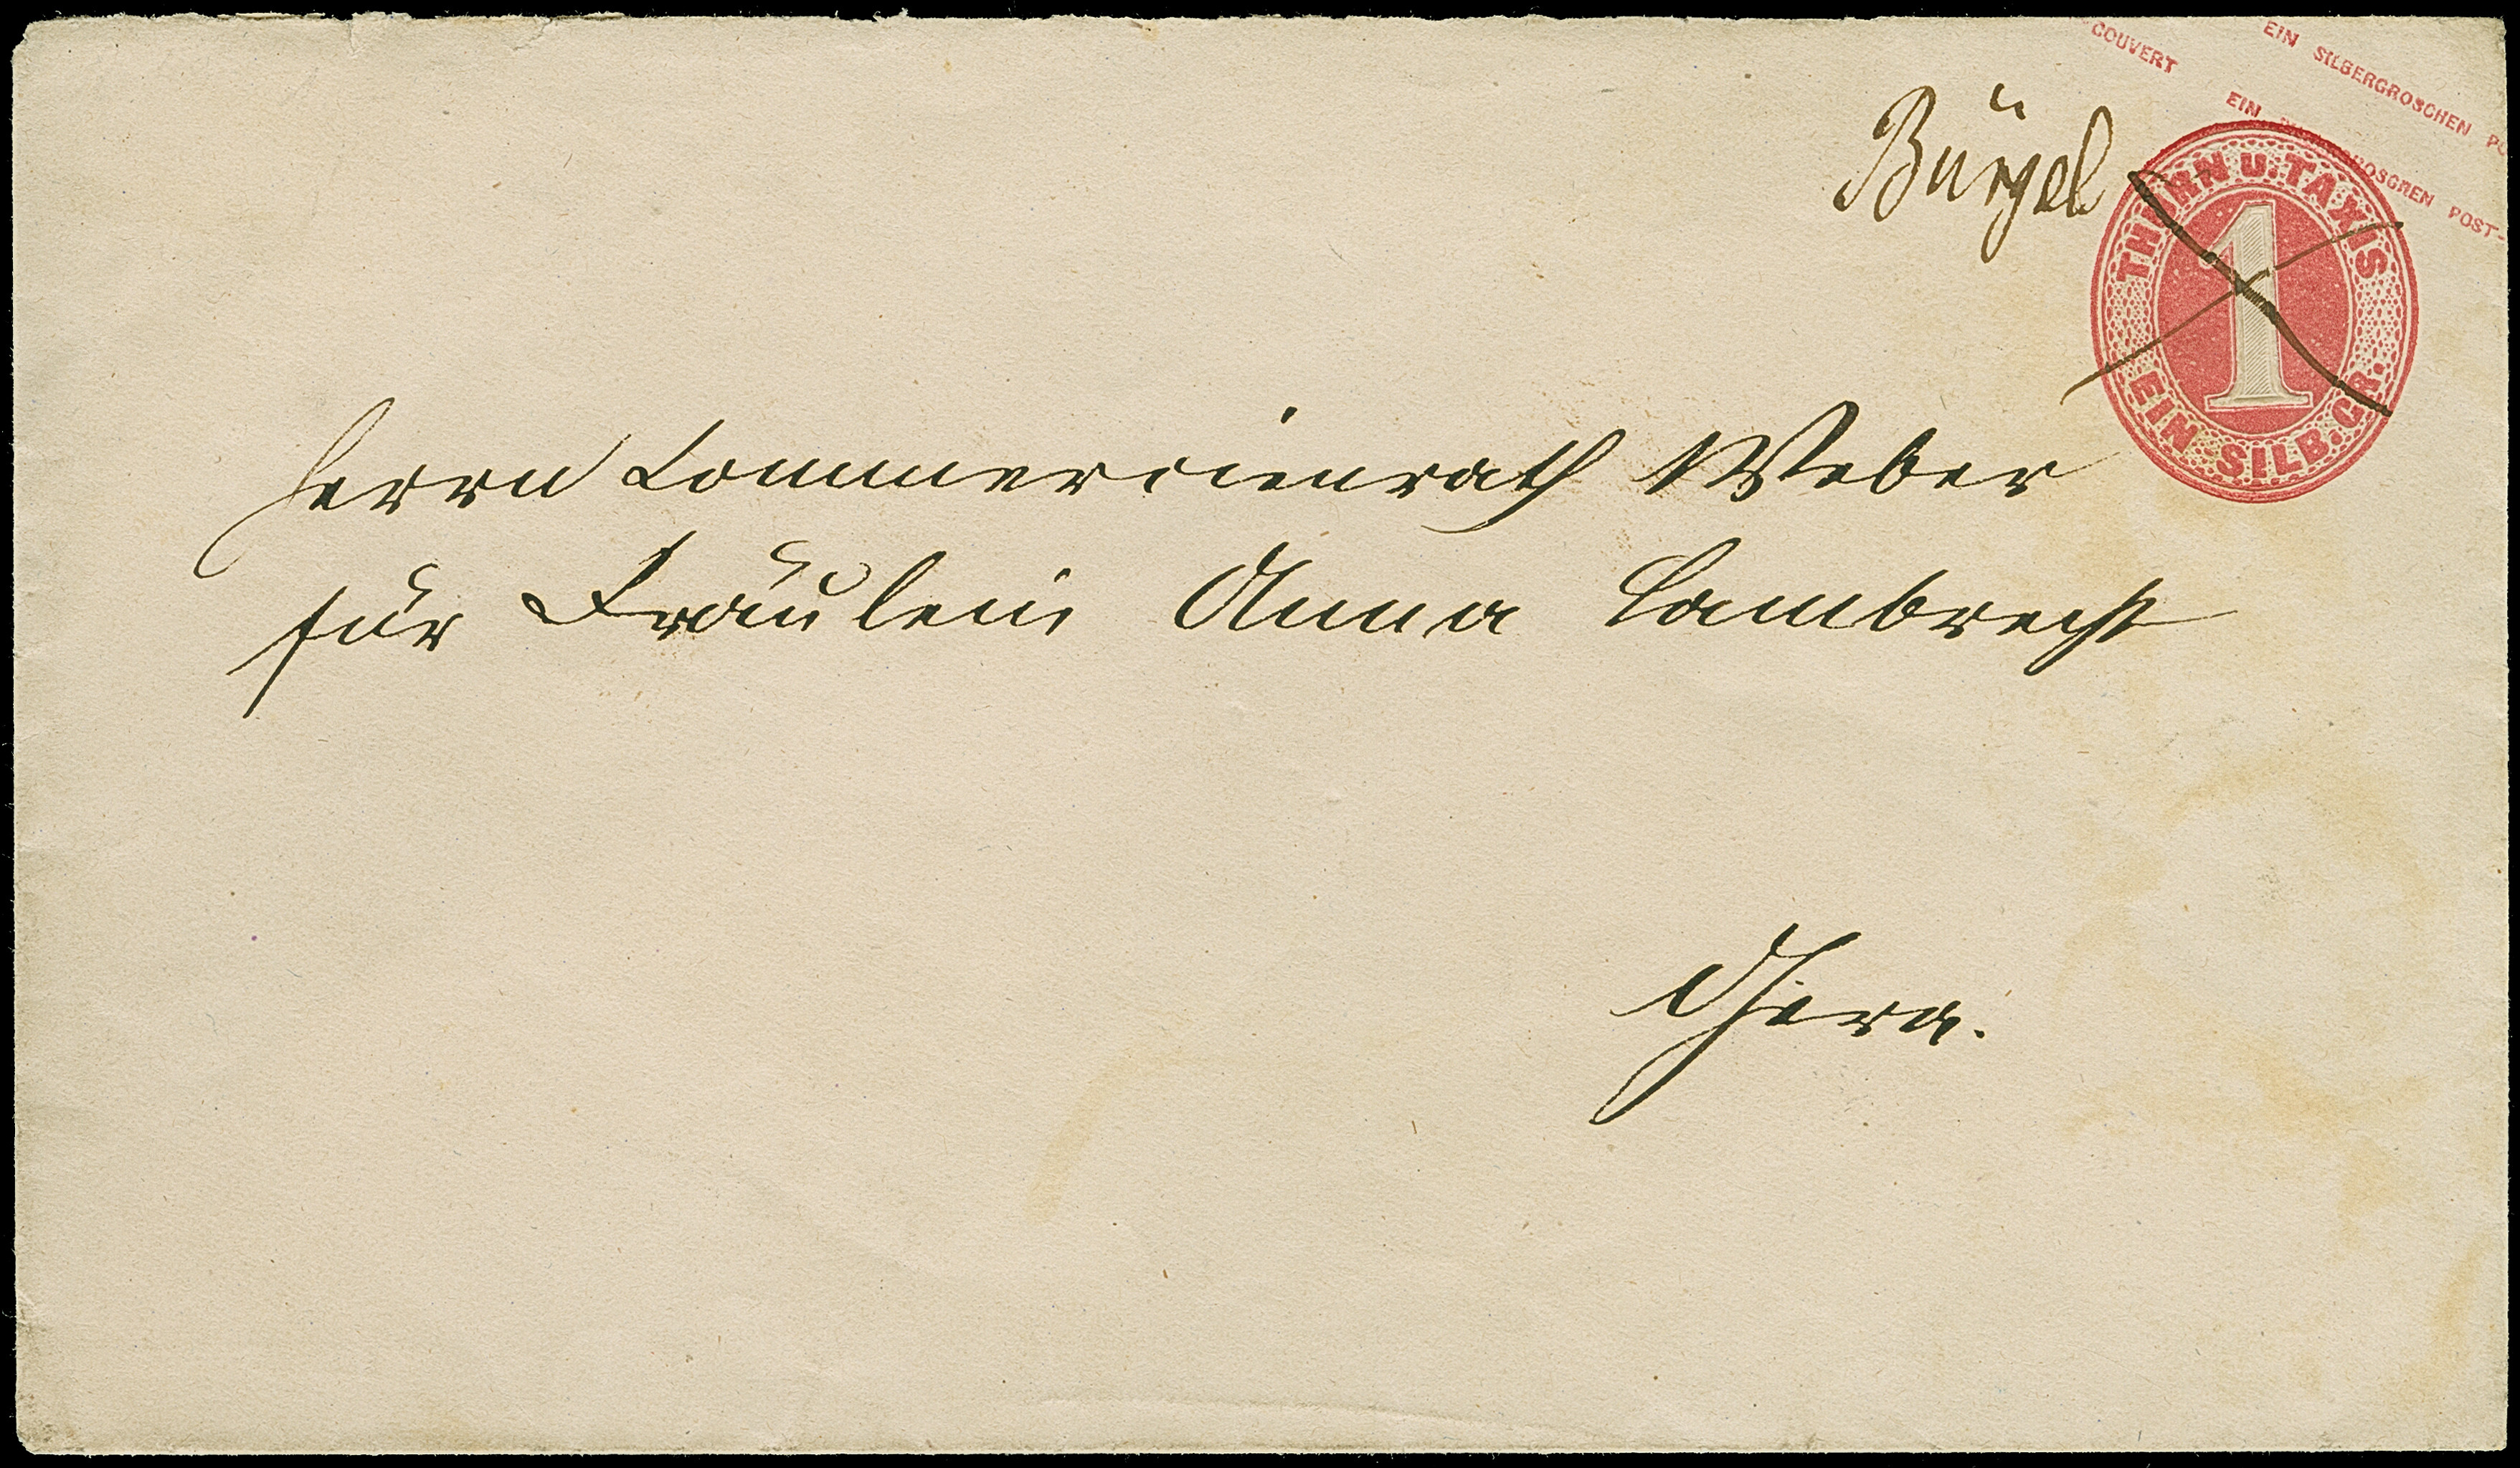 COUVERT
EIN SILBERGROSCHEN PO
EIN SILBERGROSCHEN POST-
Bürgel
THURN U. TAXIS
1
EIN SILB. GR.
Herrn Commercienrath Weber
für Fräulein Anna Lambrecht
Gera.